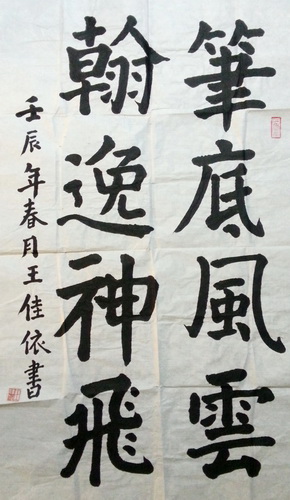 筆底風雲
翰逸神飛
壬辰年春月王佳依書